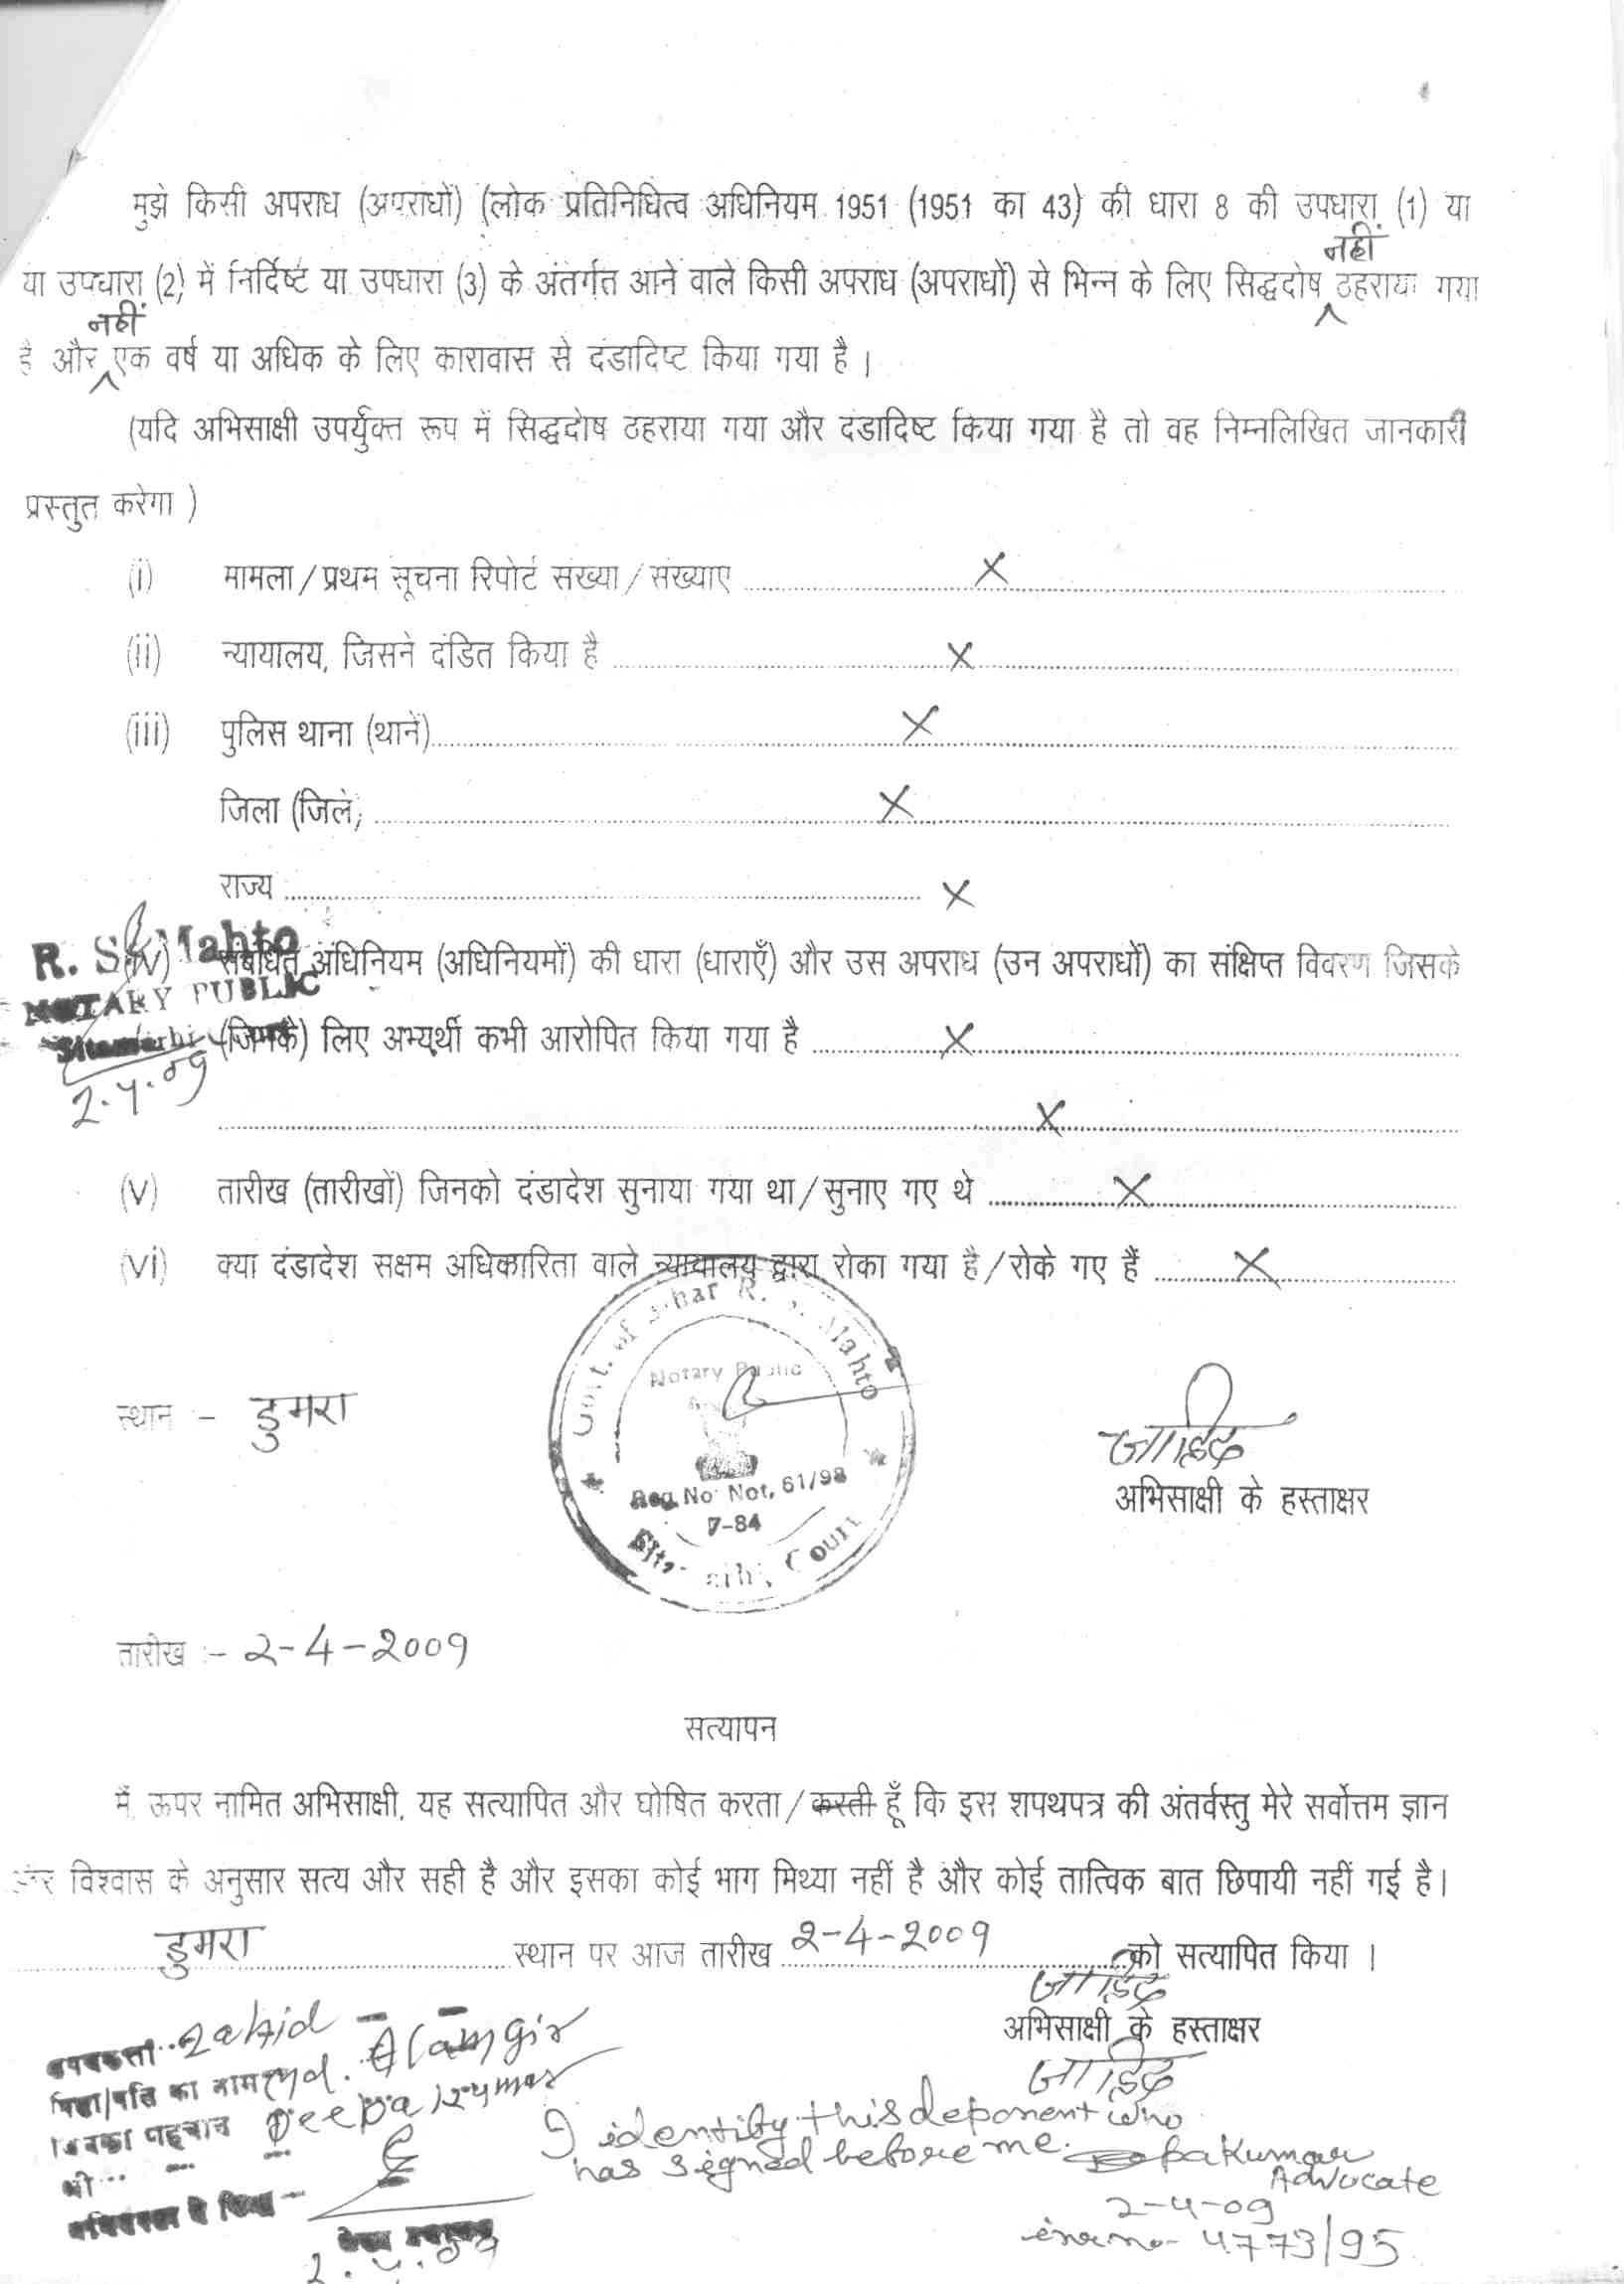 मुझे किसी अपराध (अपराधों) (लोक प्रतिनिधित्व अधिनियम 1951 (1951 का 43) की धारा 8 की उपधारा (1) या
नहीं
या उपधारा (2) में निर्दिष्ट या उपधारा (3) के अंतर्गत आने वाले किसी अपराध (अपराधों) से भिन्न के लिए सिद्धदोष ठहराया गया
नहीं
है और एक वर्ष या अधिक के लिए कारावास से दंडादिष्ट किया गया है ।
(यदि अभिसाक्षी उपर्युक्त रूप में सिद्धदोष ठहराया गया और दंडादिष्ट किया गया है तो वह निम्नलिखित जानकारी
प्रस्तुत करेगा )
(i) मामला/प्रथम सूचना रिपोर्ट संख्या/संख्याए ........ X
(ii) न्यायालय, जिसने दंडित किया है ........ X
(iii) पुलिस थाना (थानें) ........ X
जिला (जिले) ........ X
राज्य ........ X
R. S. Mahto
(iv) संबंधित अधिनियम (अधिनियमों) की धारा (धाराएँ) और उस अपराध (उन अपराधों) का संक्षिप्त विवरण जिसके
NOTARY PUBLIC
(जिनके) लिए अभ्यर्थी कभी आरोपित किया गया है ........ X
Sitamarhi
2.4.09
........ X
(v) तारीख (तारीखों) जिनको दंडादेश सुनाया गया था/सुनाए गए थे ........ X
(vi) क्या दंडादेश सक्षम अधिकारिता वाले न्यायालय द्वारा रोका गया है/रोके गए हैं ........ X
Govt. of Bihar R. S. Mahto
Notary Public
Reg. No Not, 61/98
7-84
Sitamarhi, Court
स्थान :- डुमरा
जाहिद
अभिसाक्षी के हस्ताक्षर
तारीख :- 2-4-2009
सत्यापन
मैं, ऊपर नामित अभिसाक्षी, यह सत्यापित और घोषित करता/करती हूँ कि इस शपथपत्र की अंतर्वस्तु मेरे सर्वोत्तम ज्ञान
और विश्वास के अनुसार सत्य और सही है और इसका कोई भाग मिथ्या नहीं है और कोई तात्विक बात छिपायी नहीं गई है।
डुमरा स्थान पर आज तारीख 2-4-2009 को सत्यापित किया ।
जाहिद
अभिसाक्षी के हस्ताक्षर
जाहिद
Zahid
पिता/पति का नाम Md. Alamgir
जिनका पहचान Deepa Kumar
श्री
I identify this deponent who
has signed before me.
Deepa Kumar
Advocate
2-4-09
2.4.09
4773/95